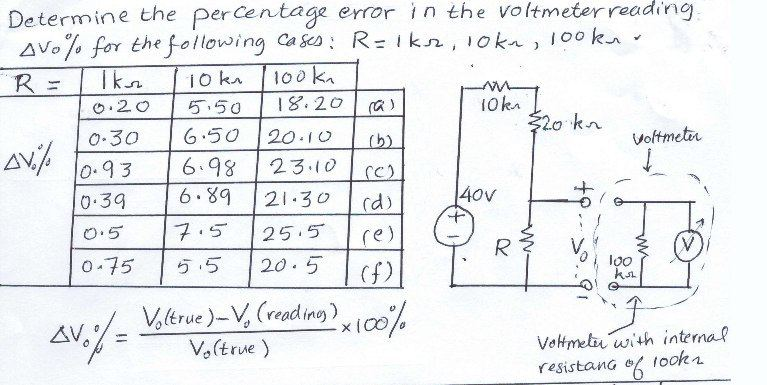 Determine the percentage error in the voltmeter reading
ΔVo% for the following cases: R = 1kΩ, 10kΩ, 100kΩ.
R = 1kΩ 10kΩ 100kΩ
ΔVo%
0.20 5.50 18.20 (a)
0.30 6.50 20.10 (b)
0.93 6.98 23.10 (c)
0.39 6.89 21.30 (d)
0.5 7.5 25.5 (e)
0.75 5.5 20.5 (f)
10kΩ
20kΩ
voltmeter
40V
+
-
R
+
Vo
-
100
kΩ
V
ΔVo% = Vo(true) - Vo(reading) / Vo(true) × 100%
Voltmeter with internal
resistance of 100kΩ